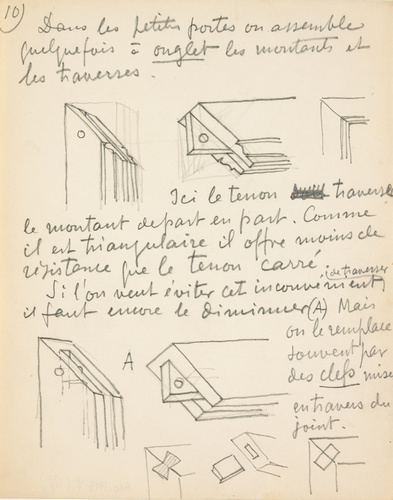 10)
Dans les petites portes on assemble
quelquefois à onglet les montants et
les traverses.
Ici le tenon traverse
le montant de part en part. Comme
il est triangulaire il offre moins de
résistance que le tenon carré.
Si l'on veut éviter cet inconvénient, (de traverser
il faut encore le diminuer (A) Mais
on le remplace
souvent par
des clefs mises
en travers du
joint.
A